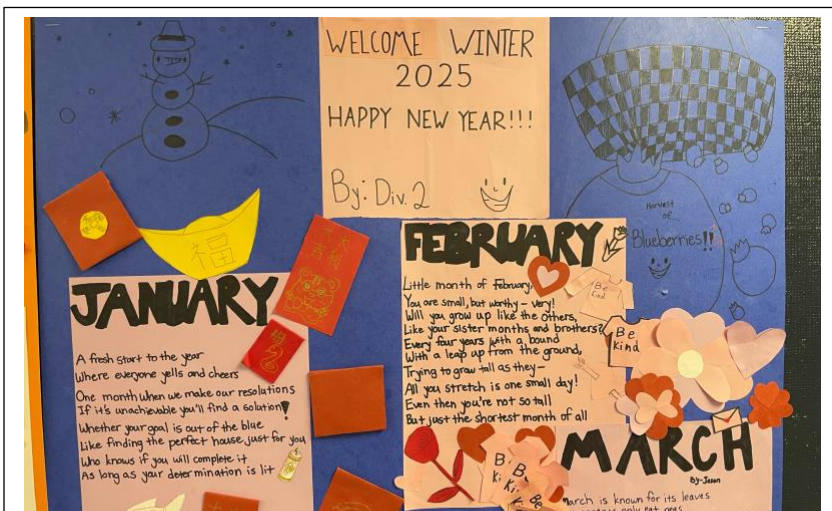 WELCOME WINTER
2025
HAPPY NEW YEAR!!!
By: Div. 2
Harvest
of
Blueberries!!
福
大
大
吉
JANUARY
A fresh start to the year
Where everyone yells and cheers
One month when we make our resolutions
If it's unachievable you'll find a solution!
Whether your goal is out of the blue
Like finding the perfect house just for you
Who knows if you will complete it
As long as your determination is lit
FEBRUARY
Little month of February,
You are small, but worthy - very!
Will you grow up like the others,
Like your sister months and brothers?
Every four years with a bound
With a leap up from the ground,
Trying to grow tall as they-
All you stretch is one small day!
Even then you're not so tall
But just the shortest month of all
Be
kind
Be
kind
MARCH
By-Jason
March is known for its leaves